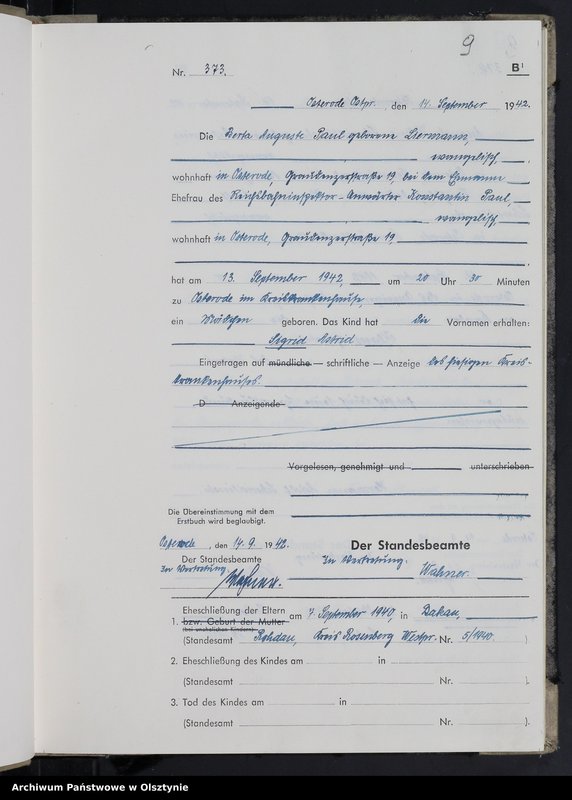 9
B¹
Nr. 373.
Osterode Ostpr., den 14. September 1942.
Die Berta Auguste Paul geborene Liermann,
evangelisch,
wohnhaft in Osterode, Graudenzerstraße 19, bei dem Ehemann
Ehefrau des Reichsbahninspektor-Anwärter Konstantin Paul,
evangelisch,
wohnhaft in Osterode, Graudenzerstraße 19,
hat am 13. September 1942, um 20 Uhr 30 Minuten
zu Osterode im Kreiskrankenhause,
ein Mädchen geboren. Das Kind hat die Vornamen erhalten:
Sigrid Astrid
Eingetragen auf mündliche — schriftliche — Anzeige des hiesigen Kreis-
krankenhauses.
D Anzeigende
Vorgelesen, genehmigt und unterschrieben
Die Übereinstimmung mit dem
Erstbuch wird beglaubigt.
Osterode, den 14. 9. 1942.
Der Standesbeamte
Der Standesbeamte
In Vertretung.
In Vertretung.
Wahner.
1. Eheschließung der Eltern
bzw. Geburt der Mutter am 7. September 1940, in Dakau,
(bei unehelichen Kindern)
(Standesamt Rohdau, Kreis Rosenberg Westpr. Nr. 5/1940. ).
2. Eheschließung des Kindes am in
(Standesamt Nr. ).
3. Tod des Kindes am in
(Standesamt Nr. ).
Archiwum Państwowe w Olsztynie